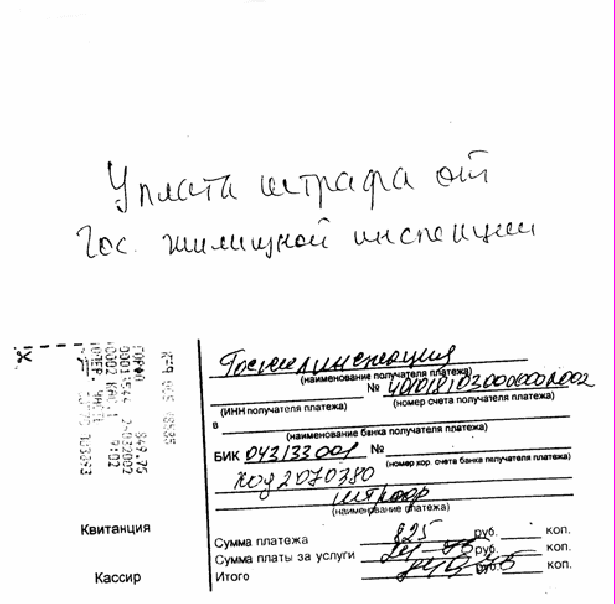 Уплата штрафа от
Гос. жилищной инспекции
Госжилинспекция
(наименование получателя платежа)
№ 40101810300000010002
(ИНН получателя платежа) (номер счета получателя платежа)
в
(наименование банка получателя платежа)
БИК 043133001 №
(номер кор. счета банка получателя платежа)
код 2070380
штраф
(наименование платежа)
Квитанция
Сумма платежа 825 руб. коп.
Сумма платы за услуги 24-75 руб. коп.
Кассир
Итого 849-75 руб. коп.